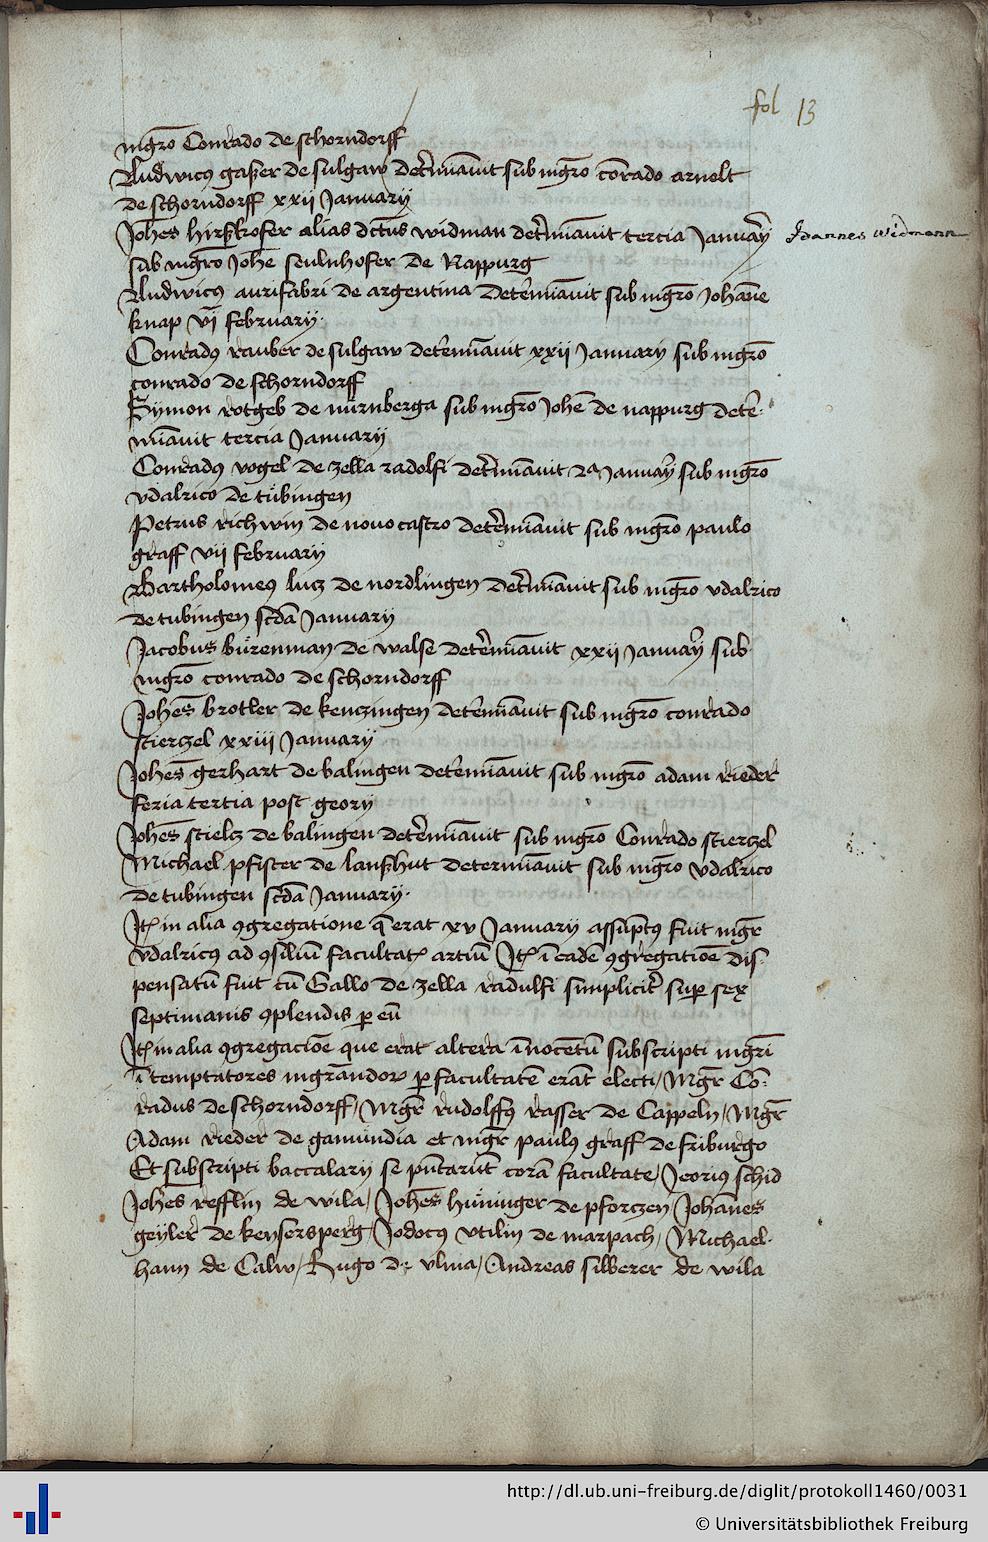 fol 13
mgro Conrado de schorndorff
Ludwicus gasser de sulgaw determiavit sub mgro conrado arnolt
de schorndorff xxii January
Johes hirsskofer alias dctus widman determiavit tercia January
Joannes Widmann
sub mgro Johe seulnhofer de Nappurg
Ludwicus aurifabri de argentina determiavit sub mgro Johane
knap vi february
Conradus rauber de sulgaw determiavit xxii January sub mgro
conrado de schorndorff
Symon rotgeb de nurnberga sub mgro Johe de nappurg dete-
miavit tercia January
Conradus vogel de zella radolfi determiavit 2a January sub mgro
vdalrico de tubingen
Petrus richwin de novo castro determiavit sub mgro paulo
graff vii february
Bartholomeus lucz de nordlingen determiavit sub mgro vdalrico
de tubingen scda January
Jacobus bürenman de walse determiavit xxii January sub
mgro conrado de schorndorff
Johes brotler de kenczingen determiavit sub mgro conrado
stierczel xxiii January
Johes gerhart de balingen determiavit sub mgro adam rieder
feria tertia post geory
Johes stielcz de balingen determiavit sub mgro Conrado stierczel
Michael pfister de lansshut determiavit sub mgro vdalrico
de tubingen scda January
Itz in alia ꝯgregatione q erat xv January assuptus fuit mgr
vdalricus ad ꝯsiliu facultatz artiu Itz i eade ꝯgregatioe dis-
pensatu fuit cu Gallo de zella radulfi simplicitr sup sex
septimanis ꝯplendis p eu
Itz in alia ꝯgregacioe que erat altera inocetu subscripti mgri
i temptatores mgrandoꝝ p facultate erat electi / Mgr Co-
radus de schorndorff / Mgr rudolffus rasser de Cappeln / Mgr
Adam rieder de gamundia et mgr paulus graff de friburgo
Et subscripti baccalary se pntarut cora facultate / Jeorius schid
Johes refflin de wila / Johes hüninger de pforczen / Johanes
geyler de keysersperg / Jodocus vtilin de marpach / Michael
hann de Calw / Hugo de vlma / Andreas silberer de wila
http://dl.ub.uni-freiburg.de/diglit/protokoll1460/0031
© Universitätsbibliothek Freiburg